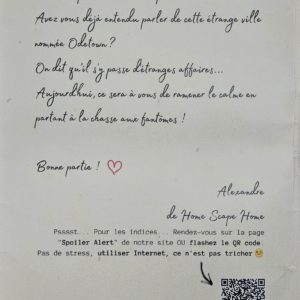 Avez vous déjà entendu parler de cette étrange ville
nommée Odetown ?
On dit qu'il s'y passe d'étranges affaires...
Aujourd'hui, ce sera à vous de ramener le calme en
partant à la chasse aux fantômes !
Bonne partie ! ♡
Alexandre
de Home Scape Home
Psssst... Pour les indices... Rendez-vous sur la page
"Spoiler Alert" de notre site OU flashez le QR code.
Pas de stress, utiliser Internet, ce n'est pas tricher 😉